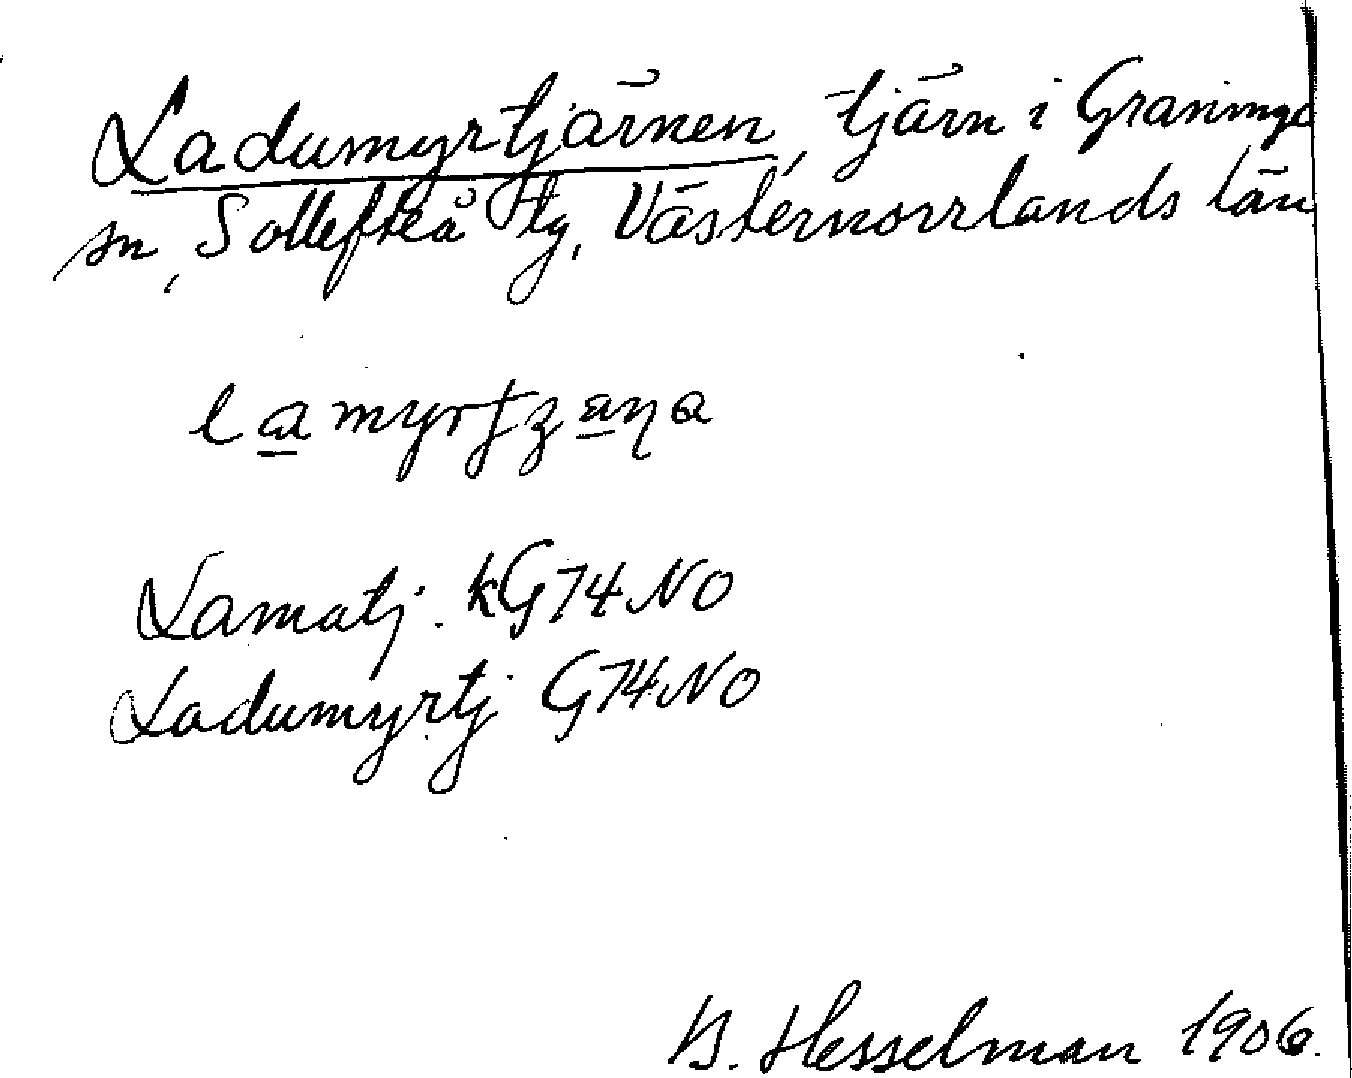 Ladumyrtjärnen, tjärn i Graninge
sn, Sollefteå tg, Västernorrlands län
Lamatj. kG74NO
Ladumyrtj G74NO
B. Hesselman 1906.